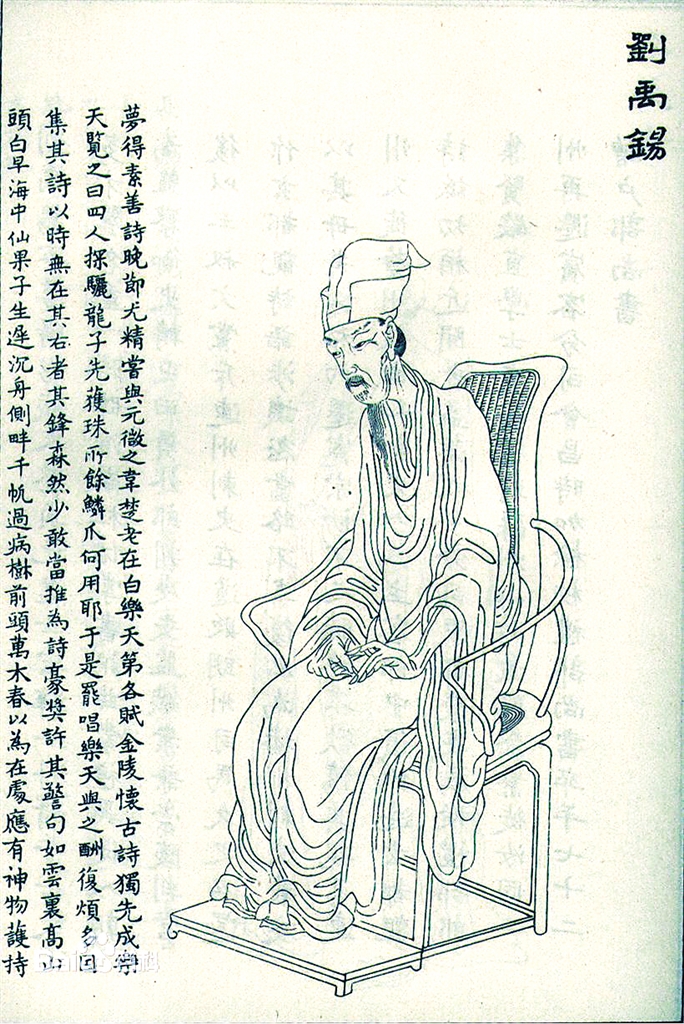 劉禹錫
夢得素善詩晚節尤精嘗與元微之韋楚老在白樂天第各賦金陵懷古詩獨先成樂
天覽之曰四人探驪龍子先獲珠所餘鱗爪何用耶于是罷唱樂天與之酬復煩多因
集其詩以時無在其右者其鋒森然少敢當推為詩豪獎許其警句如雲裏高山
頭白早海中仙果子生遲沉舟側畔千帆過病樹前頭萬木春以為在處應有神物護持